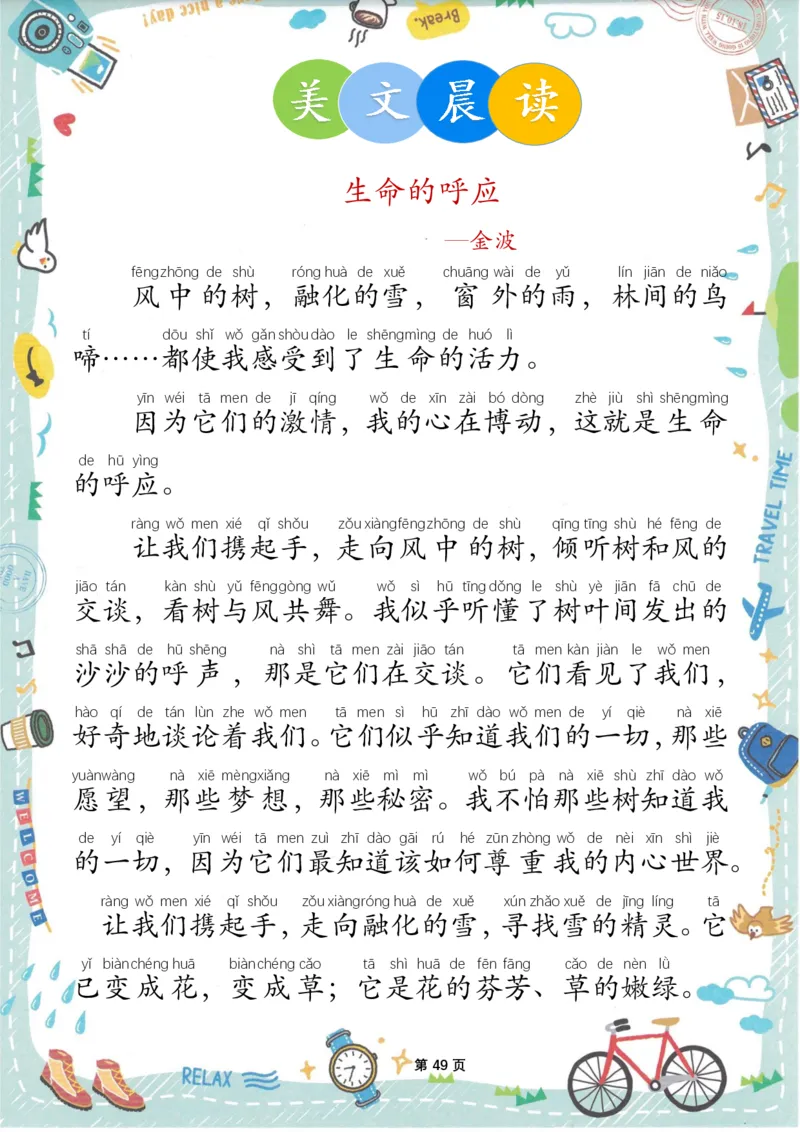 Have a nice day!
Break.
美文晨读
生命的呼应
—金波
fēng zhōng de shù róng huà de xuě chuāng wài de yǔ lín jiān de niǎo
风中的树，融化的雪，窗外的雨，林间的鸟
tí dōu shǐ wǒ gǎn shòu dào le shēng mìng de huó lì
啼……都使我感受到了生命的活力。
yīn wéi tā men de jī qíng wǒ de xīn zài bó dòng zhè jiù shì shēng mìng
因为它们的激情，我的心在博动，这就是生命
de hū yìng
的呼应。
ràng wǒ men xié qǐ shǒu zǒu xiàng fēng zhōng de shù qīng tīng shù hé fēng de
让我们携起手，走向风中的树，倾听树和风的
jiāo tán kàn shù yǔ fēng gòng wǔ wǒ sì hū tīng dǒng le shù yè jiān fā chū de
交谈，看树与风共舞。我似乎听懂了树叶间发出的
shā shā de hū shēng nà shì tā men zài jiāo tán tā men kàn jiàn le wǒ men
沙沙的呼声，那是它们在交谈。它们看见了我们，
hào qí de tán lùn zhe wǒ men tā men sì hū zhī dào wǒ men de yí qiè nà xiē
好奇地谈论着我们。它们似乎知道我们的一切，那些
yuàn wàng nà xiē mèng xiǎng nà xiē mì mì wǒ bú pà nà xiē shù zhī dào wǒ
愿望，那些梦想，那些秘密。我不怕那些树知道我
de yí qiè yīn wéi tā men zuì zhī dào gāi rú hé zūn zhòng wǒ de nèi xīn shì jiè
的一切，因为它们最知道该如何尊重我的内心世界。
ràng wǒ men xié qǐ shǒu zǒu xiàng róng huà de xuě xún zhǎo xuě de jīng líng tā
让我们携起手，走向融化的雪，寻找雪的精灵。它
yǐ biàn chéng huā biàn chéng cǎo tā shì huā de fēn fāng cǎo de nèn lǜ
已变成花，变成草；它是花的芬芳、草的嫩绿。
TRAVEL TIME
WELCOME
RELAX
第 49 页